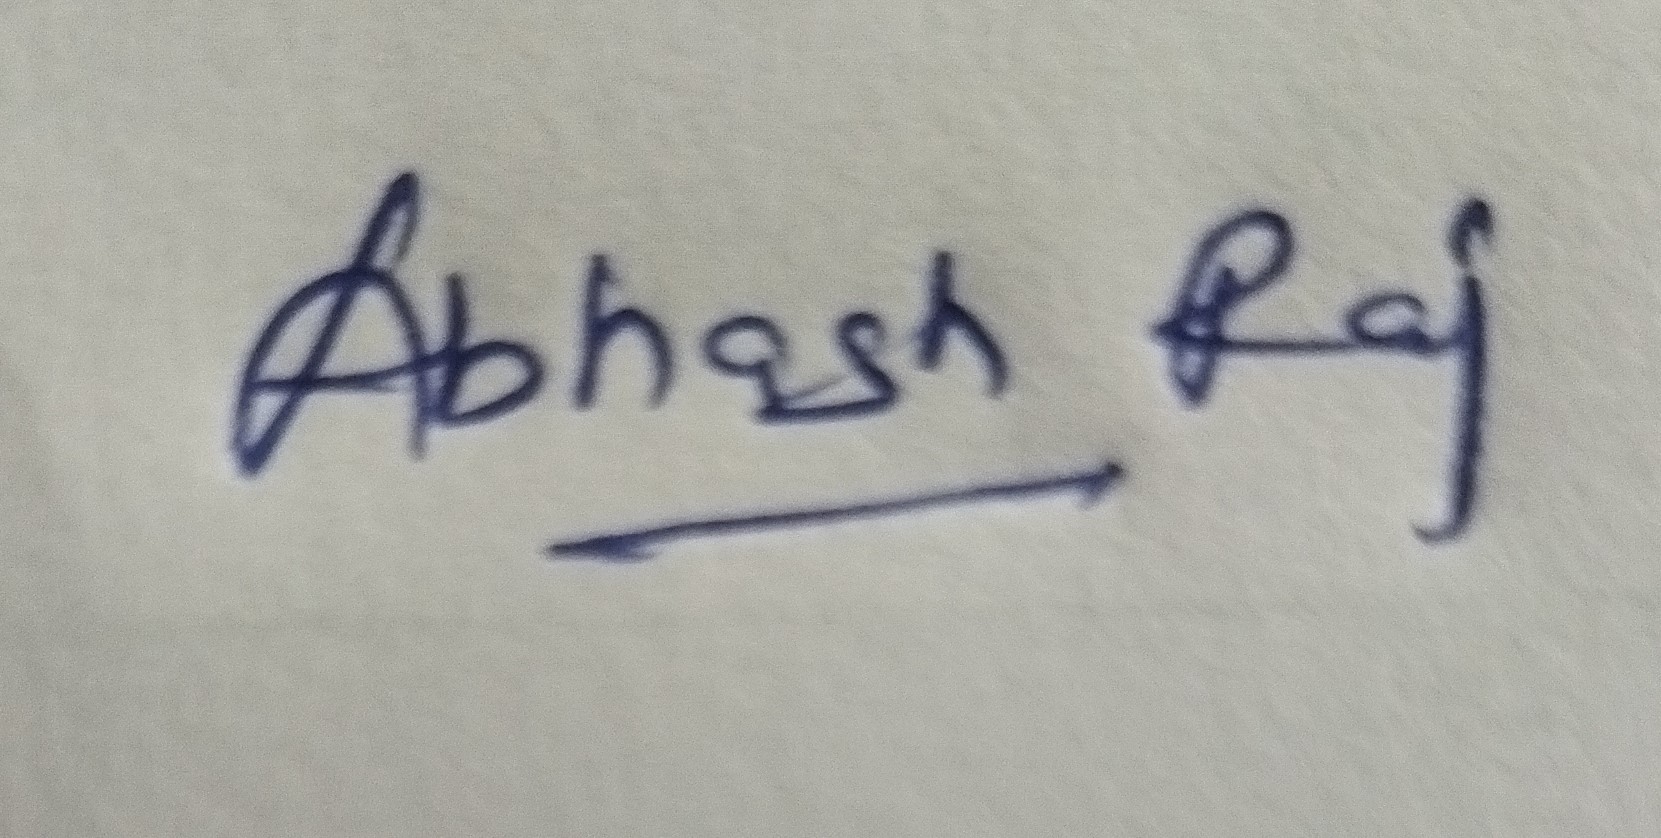 Abhash Raj